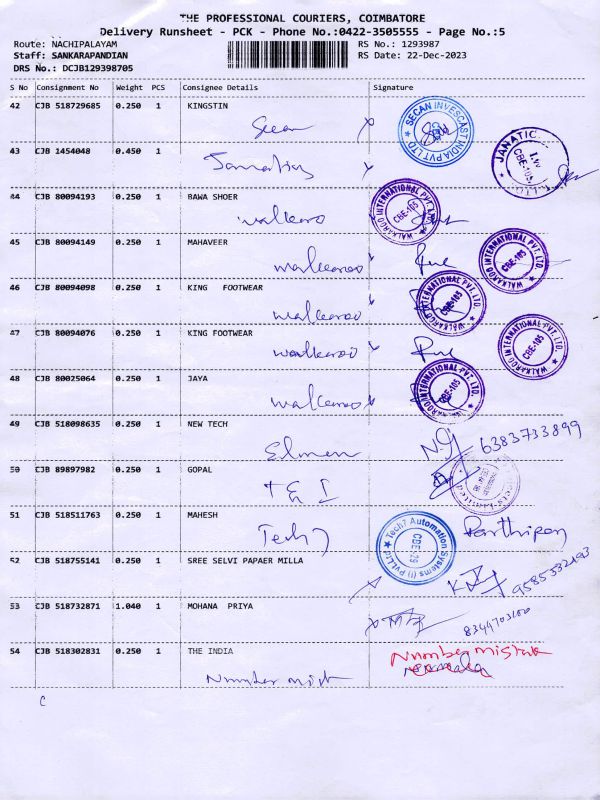 THE PROFESSIONAL COURIERS, COIMBATORE
Delivery Runsheet - PCK - Phone No.:0422-3505555 - Page No.:5
Route: NACHIPALAYAM RS No.: 1293987
Staff: SANKARAPANDIAN RS Date: 22-Dec-2023
DRS No.: DCJB129398705
S No Consignment No Weight PCS Consignee Details Signature
42 CJB 518729685 0.250 1 KINGSTIN
Secan
SECAN INVESCAST INDIA PVT LTD
43 CJB 1454048 0.450 1
JANATIC
CBE-105
44 CJB 80094193 0.250 1 BAWA SHOER
walkaroo
WALKAROO INTERNATIONAL PVT. LTD.
CBE-105
45 CJB 80094149 0.250 1 MAHAVEER
walkaroo
WALKAROO INTERNATIONAL PVT. LTD.
CBE-105
46 CJB 80094098 0.250 1 KING FOOTWEAR
walkaroo
WALKAROO INTERNATIONAL PVT. LTD.
CBE-105
47 CJB 80094076 0.250 1 KING FOOTWEAR
walkaroo
WALKAROO INTERNATIONAL PVT. LTD.
CBE-105
48 CJB 80025064 0.250 1 JAYA
walkaroo
WALKAROO INTERNATIONAL PVT. LTD.
CBE-105
49 CJB 518098635 0.250 1 NEW TECH
6383733899
50 CJB 89897982 0.250 1 GOPAL
51 CJB 518511763 0.250 1 MAHESH
Tech 7
Tech7 Automation Systems (I) Pvt.Ltd
CBE-29
Parthipan
52 CJB 518755141 0.250 1 SREE SELVI PAPAER MILLA
9585532493
53 CJB 518732871 1.040 1 MOHANA PRIYA
54 CJB 518302831 0.250 1 THE INDIA
Number mistake
Number mist